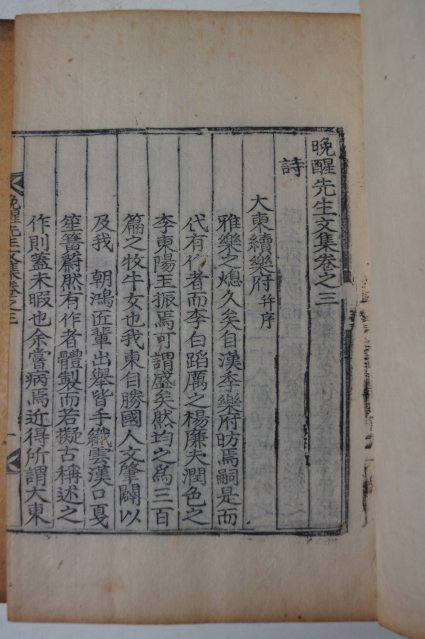 晩醒先生文集卷之三
詩
大東續樂府 幷序
雅樂之熄久矣自漢季樂府昉焉嗣是而
代有作者而李白蹈厲之楊廉夫潤色之
李東陽玉振焉可謂盛矣然均之爲三百
篇之牧牛女也我東自勝國人文肇闢以
及我 朝鴻匠輩出擧皆手織雲漢口戛
笙簧蔚然有作者體製而若擬古稱述之
作則蓋未暇也余嘗病焉近得所謂大東
晩醒先生文集卷之三
一